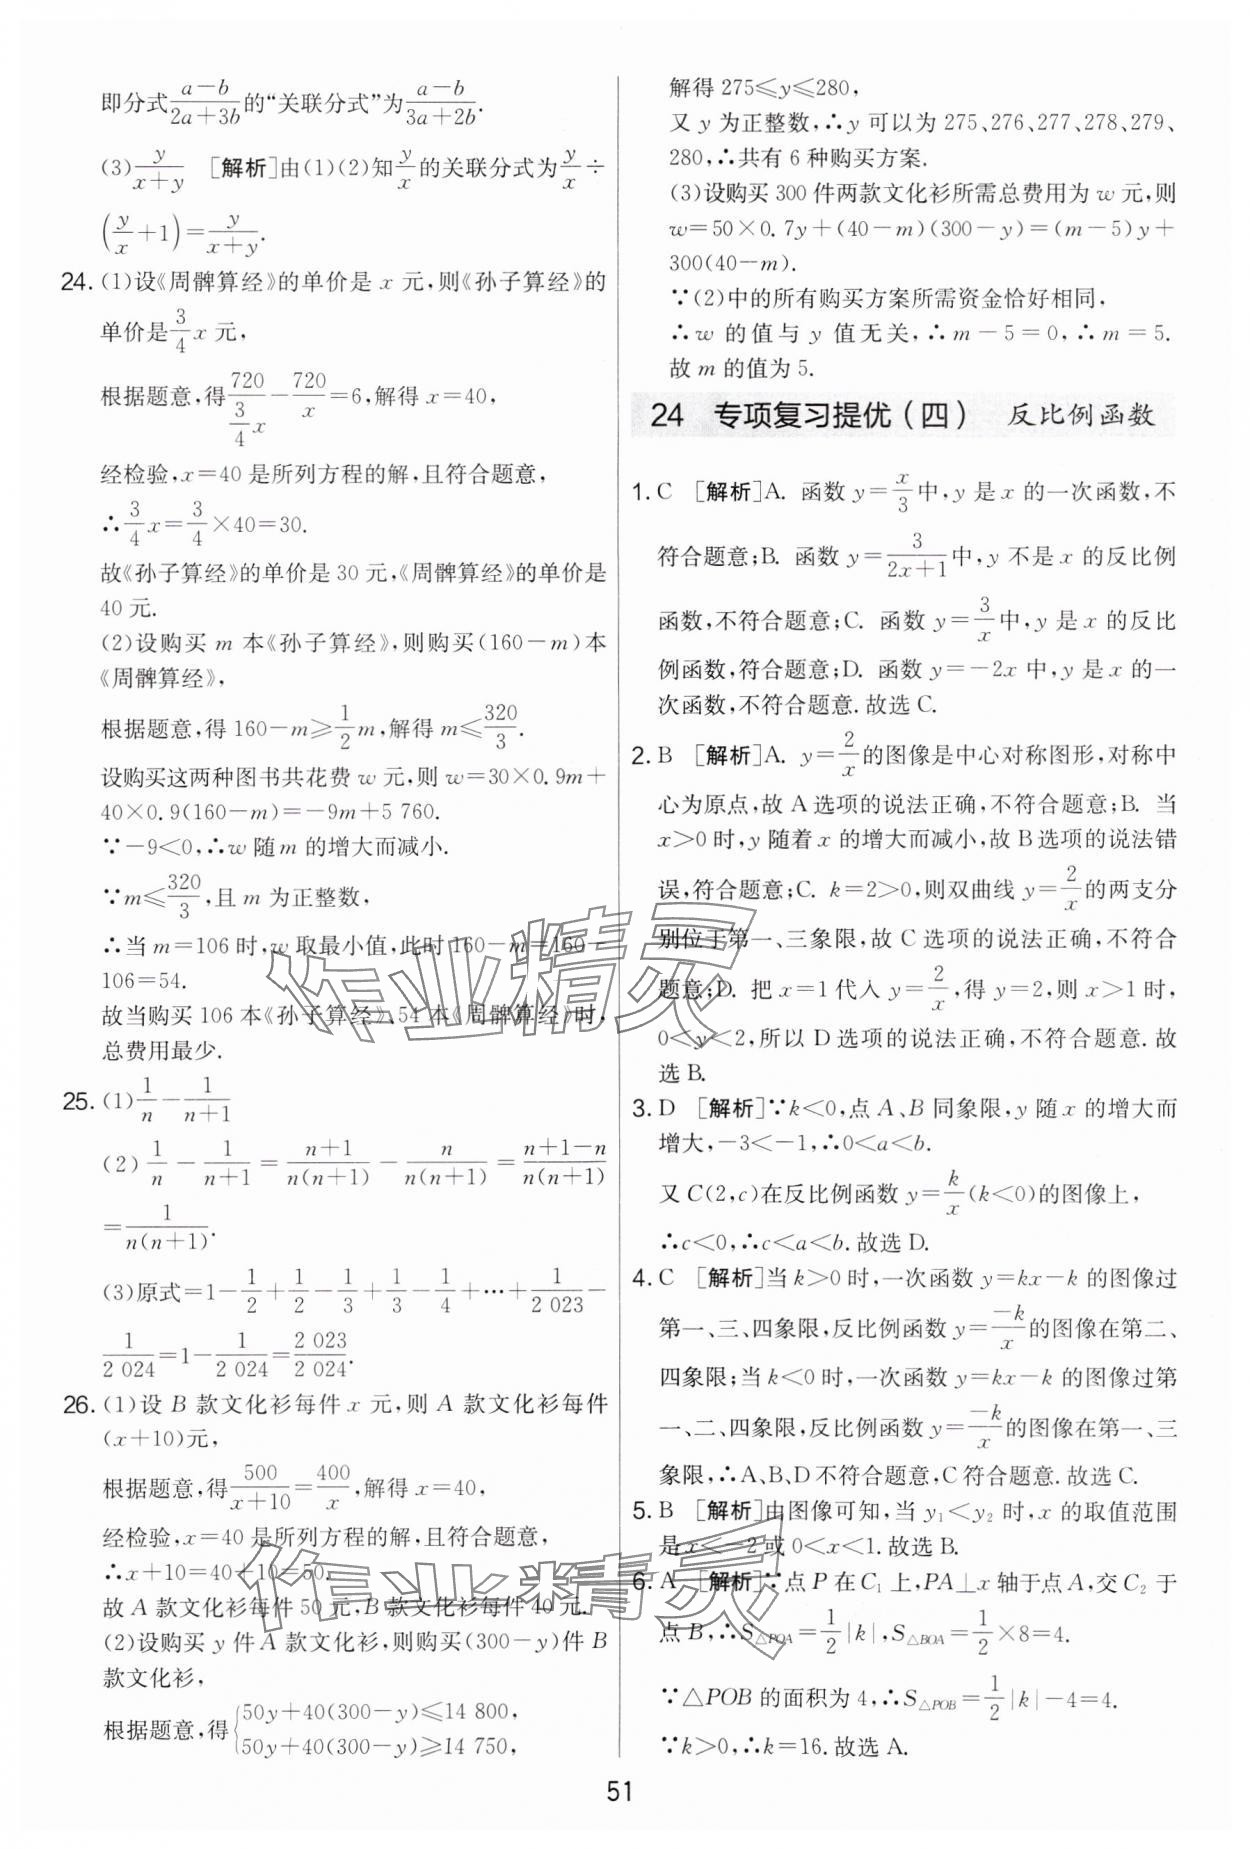 即分式$\frac{a-b}{2a+3b}$的“关联分式”为$\frac{a-b}{3a+2b}$.
(3)$\frac{y}{x+y}$ [解析]由(1)(2)知$\frac{y}{x}$的关联分式为$\frac{y}{x}$÷
$\left(\frac{y}{x}+1\right)=\frac{y}{x+y}$.
24. (1)设《周髀算经》的单价是 x 元,则《孙子算经》的
单价是$\frac{3}{4}$x 元,
根据题意,得$\frac{720}{\frac{3}{4}x}-\frac{720}{x}$=6,解得 x=40,
经检验,x=40 是所列方程的解,且符合题意,
∴$\frac{3}{4}$x=$\frac{3}{4}$×40=30.
故《孙子算经》的单价是 30 元,《周髀算经》的单价是
40 元.
(2)设购买 m 本《孙子算经》,则购买(160-m)本
《周髀算经》,
根据题意,得 160-m≥$\frac{1}{2}$m,解得 m≤$\frac{320}{3}$.
设购买这两种图书共花费 w 元,则 w=30×0.9m+
40×0.9(160-m)=-9m+5 760.
∵-9<0,∴w 随 m 的增大而减小.
∵m≤$\frac{320}{3}$,且 m 为正整数,
∴当 m=106 时,w 取最小值,此时 160-m=160-
106=54.
故当购买 106 本《孙子算经》、54 本《周髀算经》时,
总费用最少.
25. (1)$\frac{1}{n}-\frac{1}{n+1}$
(2)$\frac{1}{n}-\frac{1}{n+1}=\frac{n+1}{n(n+1)}-\frac{n}{n(n+1)}=\frac{n+1-n}{n(n+1)}$
$=\frac{1}{n(n+1)}$.
(3)原式=1-$\frac{1}{2}+\frac{1}{2}-\frac{1}{3}+\frac{1}{3}-\frac{1}{4}$+…+$\frac{1}{2\ 023}$-
$\frac{1}{2\ 024}$=1-$\frac{1}{2\ 024}=\frac{2\ 023}{2\ 024}$.
26. (1)设 B 款文化衫每件 x 元,则 A 款文化衫每件
(x+10)元,
根据题意,得$\frac{500}{x+10}=\frac{400}{x}$,解得 x=40,
经检验,x=40 是所列方程的解,且符合题意,
∴x+10=40+10=50.
故 A 款文化衫每件 50 元,B 款文化衫每件 40 元.
(2)设购买 y 件 A 款文化衫,则购买(300-y)件 B
款文化衫,
根据题意,得$\begin{cases}50y+40(300-y)≤14\ 800,\\50y+40(300-y)≥14\ 750,\end{cases}$
解得 275≤y≤280,
又 y 为正整数,∴y 可以为 275、276、277、278、279、
280,∴共有 6 种购买方案.
(3)设购买 300 件两款文化衫所需总费用为 w 元,则
w=50×0.7y+(40-m)(300-y)=(m-5)y+
300(40-m).
∵(2)中的所有购买方案所需资金恰好相同,
∴w 的值与 y 值无关,∴m-5=0,∴m=5.
故 m 的值为 5.
24 专项复习提优(四) 反比例函数
1. C [解析]A. 函数 y=$\frac{x}{3}$中,y 是 x 的一次函数,不
符合题意;B. 函数 y=$\frac{3}{2x+1}$中,y 不是 x 的反比例
函数,不符合题意;C. 函数 y=$\frac{3}{x}$中,y 是 x 的反比
例函数,符合题意;D. 函数 y=-2x 中,y 是 x 的一
次函数,不符合题意.故选 C.
2. B [解析]A. y=$\frac{2}{x}$的图像是中心对称图形,对称中
心为原点,故 A 选项的说法正确,不符合题意;B. 当
x>0 时,y 随着 x 的增大而减小,故 B 选项的说法错
误,符合题意;C. k=2>0,则双曲线 y=$\frac{2}{x}$的两支分
别位于第一、三象限,故 C 选项的说法正确,不符合
题意;D. 把 x=1 代入 y=$\frac{2}{x}$,得 y=2,则 x>1 时,
0<y<2,所以 D 选项的说法正确,不符合题意.故
选 B.
3. D [解析]∵k<0,点 A、B 同象限,y 随 x 的增大而
增大,-3<-1,∴0<a<b.
又 C(2,c)在反比例函数 y=$\frac{k}{x}$(k<0)的图像上,
∴c<0,∴c<a<b.故选 D.
4. C [解析]当 k>0 时,一次函数 y=kx-k 的图像过
第一、三、四象限,反比例函数 y=$\frac{-k}{x}$的图像在第二、
四象限;当 k<0 时,一次函数 y=kx-k 的图像过第
一、二、四象限,反比例函数 y=$\frac{-k}{x}$的图像在第一、三
象限,∴A、B、D 不符合题意,C 符合题意.故选 C.
5. B [解析]由图像可知,当 y₁<y₂ 时,x 的取值范围
是 x<-2 或 0<x<1.故选 B.
6. A [解析]∵点 P 在 C₁ 上,PA⊥x 轴于点 A,交 C₂ 于
点 B,∴S△POA=$\frac{1}{2}$|k|,S△BOA=$\frac{1}{2}$×8=4.
∵△POB 的面积为 4,∴S△POB=$\frac{1}{2}$|k|-4=4.
∵k>0,∴k=16.故选 A.
51
作业精灵
作业精灵